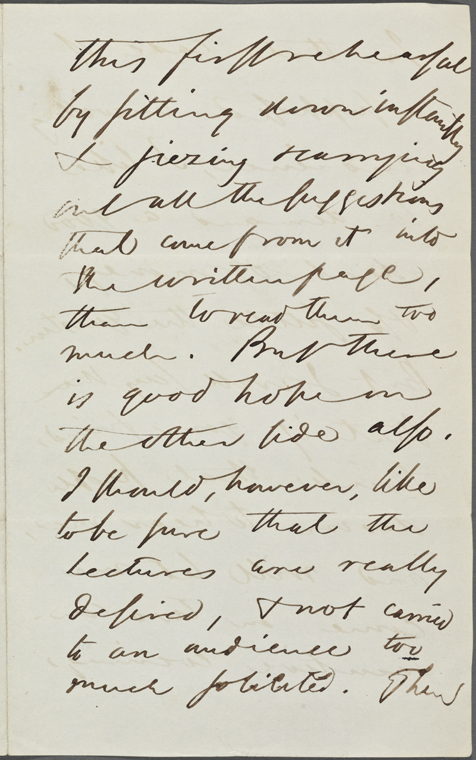 this first rehearsal
by sitting down instantly
& siezing & carrying
out all the suggestions
that come from it into
the written page,
than to read them too
much. But there
is good hope on
the other side also.
I should, however, like
to be sure that the
Lectures are really
desired, & not carried
to an audience too
much solicited. Then